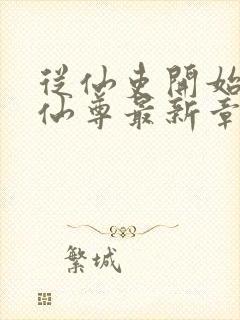 從仙吏開始
仙尊最新章
繁城